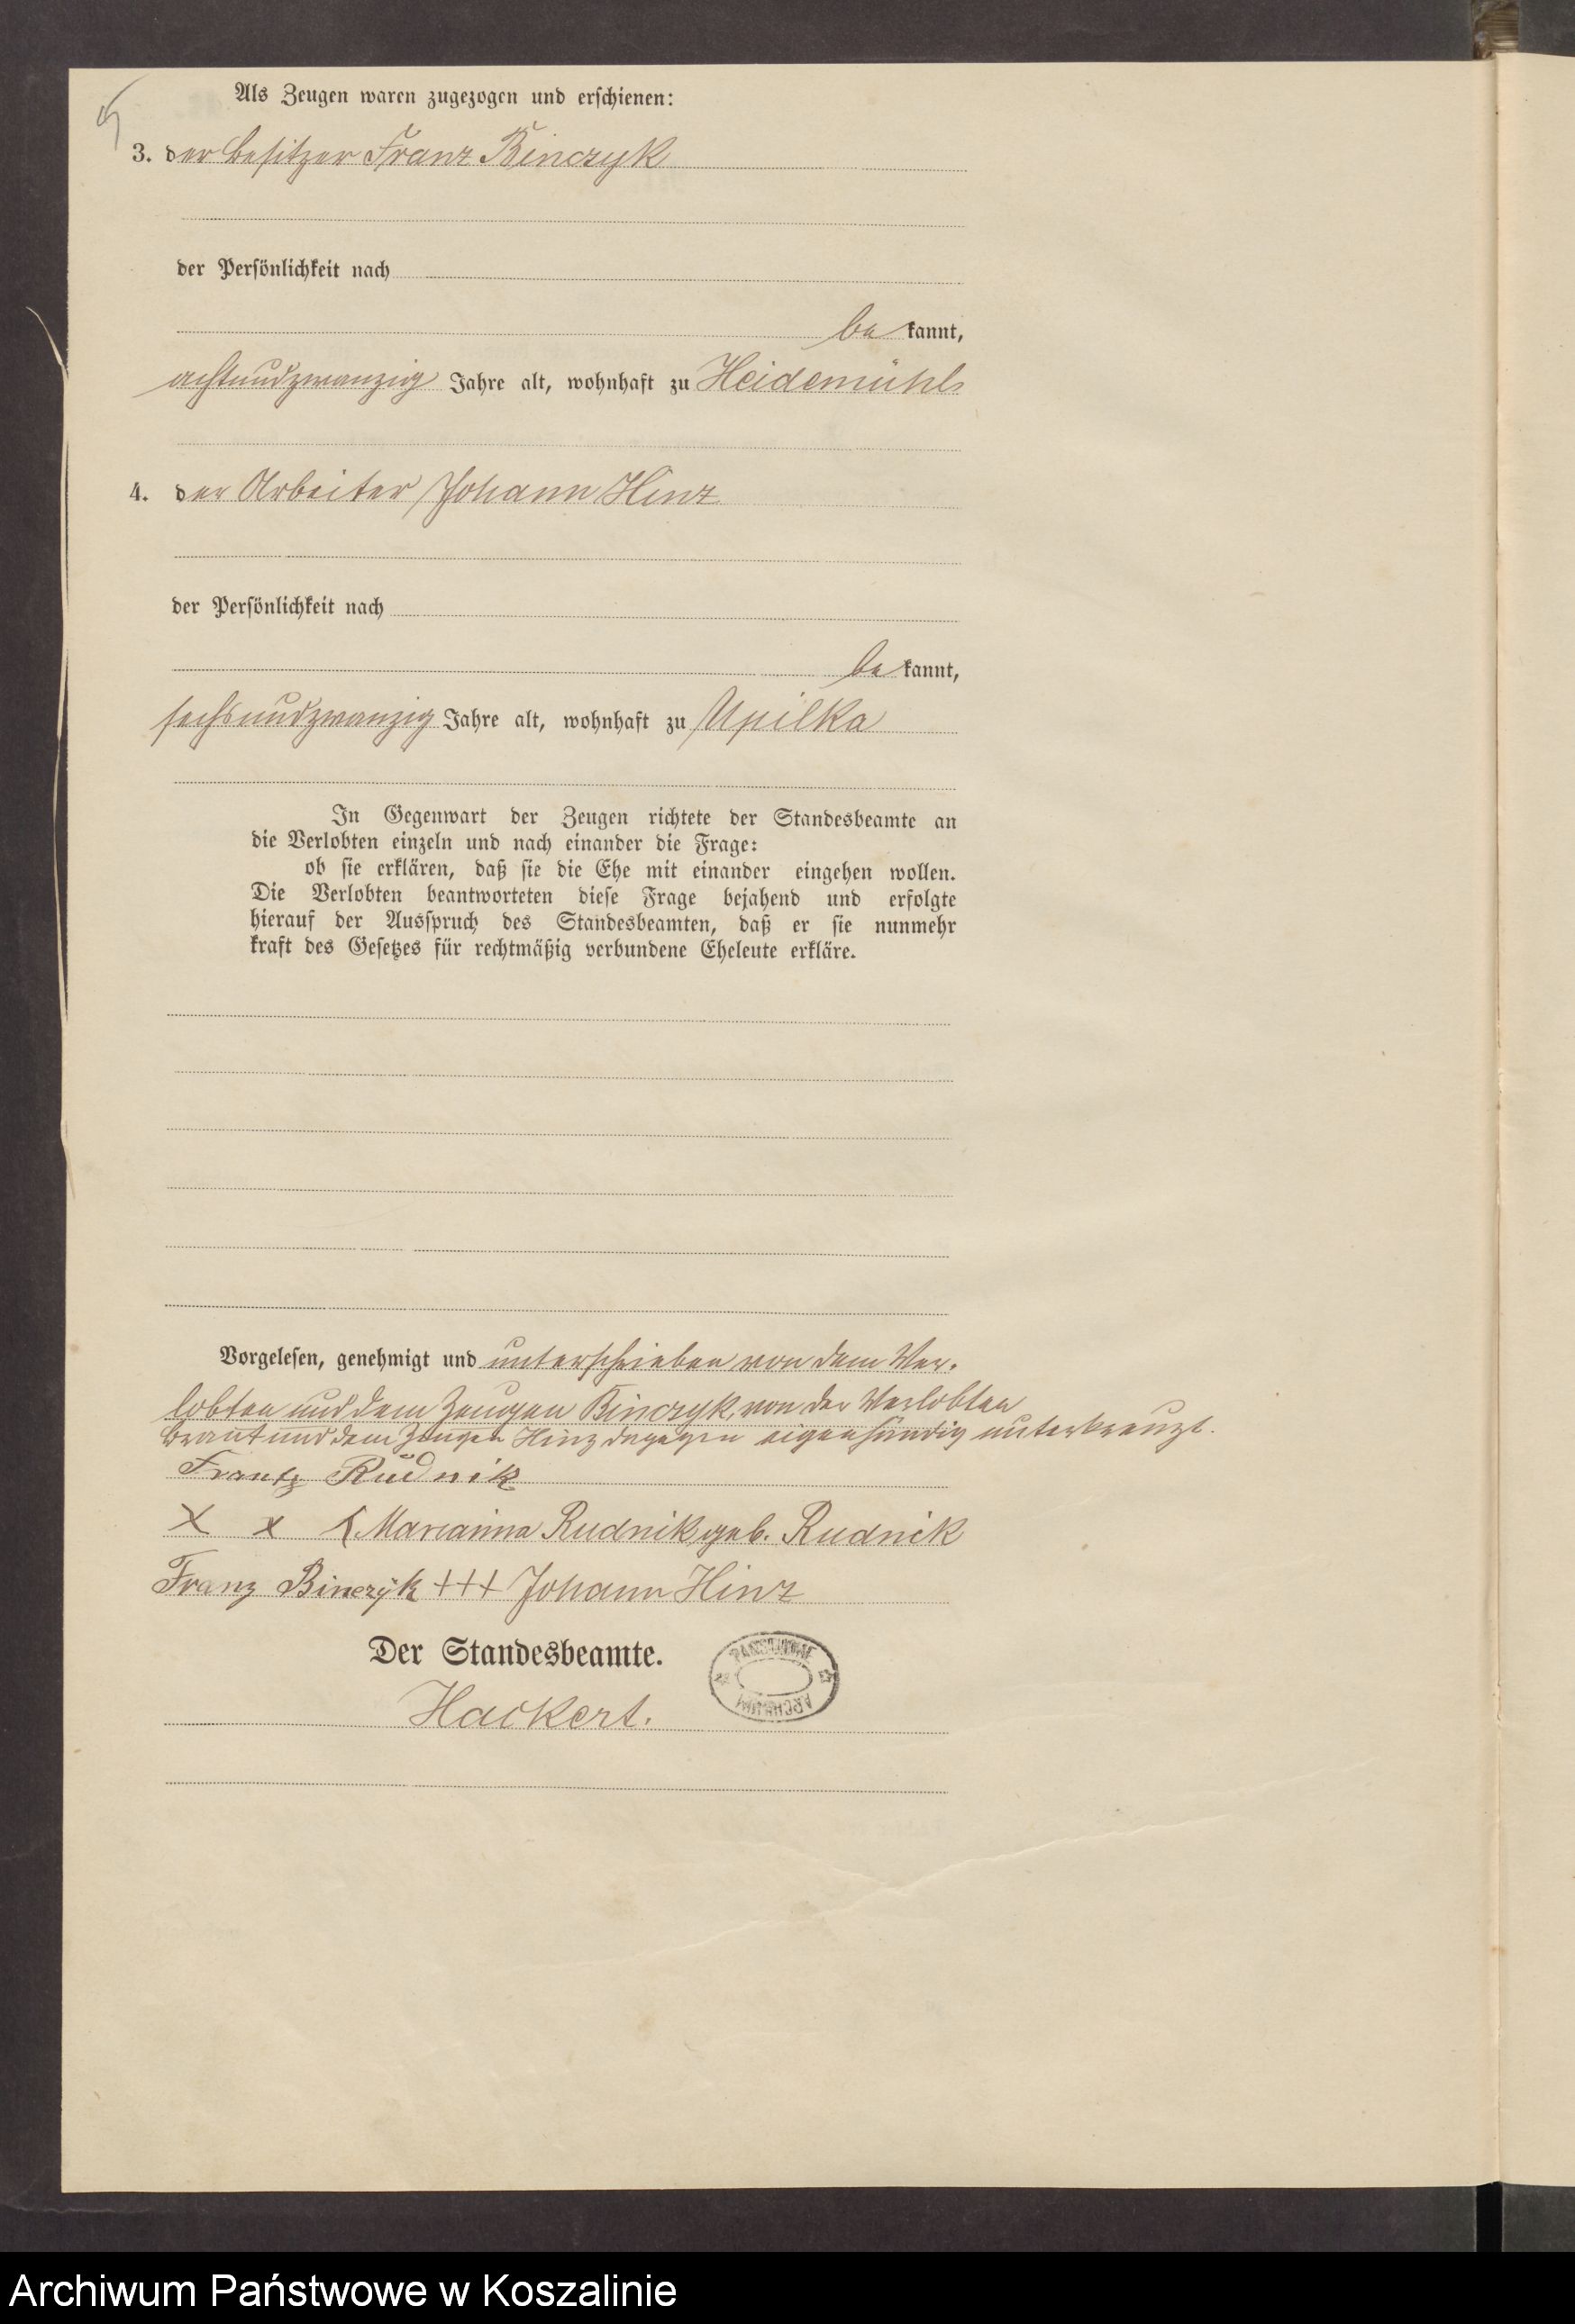 Als Zeugen waren zugezogen und erschienen:
3. der Besitzer Franz Binczyk
der Persönlichkeit nach
be kannt,
achtundzwanzig Jahre alt, wohnhaft zu Heidemühl
4. der Arbeiter Johann Hinz
der Persönlichkeit nach
be kannt,
sechsundzwanzig Jahre alt, wohnhaft zu Upilka
In Gegenwart der Zeugen richtete der Standesbeamte an
die Verlobten einzeln und nach einander die Frage:
ob sie erklären, daß sie die Ehe mit einander eingehen wollen.
Die Verlobten beantworteten diese Frage bejahend und erfolgte
hierauf der Ausspruch des Standesbeamten, daß er sie nunmehr
kraft des Gesetzes für rechtmäßig verbundene Eheleute erkläre.
Vorgelesen, genehmigt und unterschrieben von dem Ver-
lobten und dem Zeugen Binczyk, von der Verlobten
Braut und dem Zeugen Hinz dagegen eigenhändig unterkreuzt.
Frantz Rudnik
X x X Marianna Rudnik geb. Rudnick
Franz Binczyk +++ Johann Hinz
Der Standesbeamte.
PAŃSTWOWE
ARCHIWUM
Hackert.
Archiwum Państwowe w Koszalinie